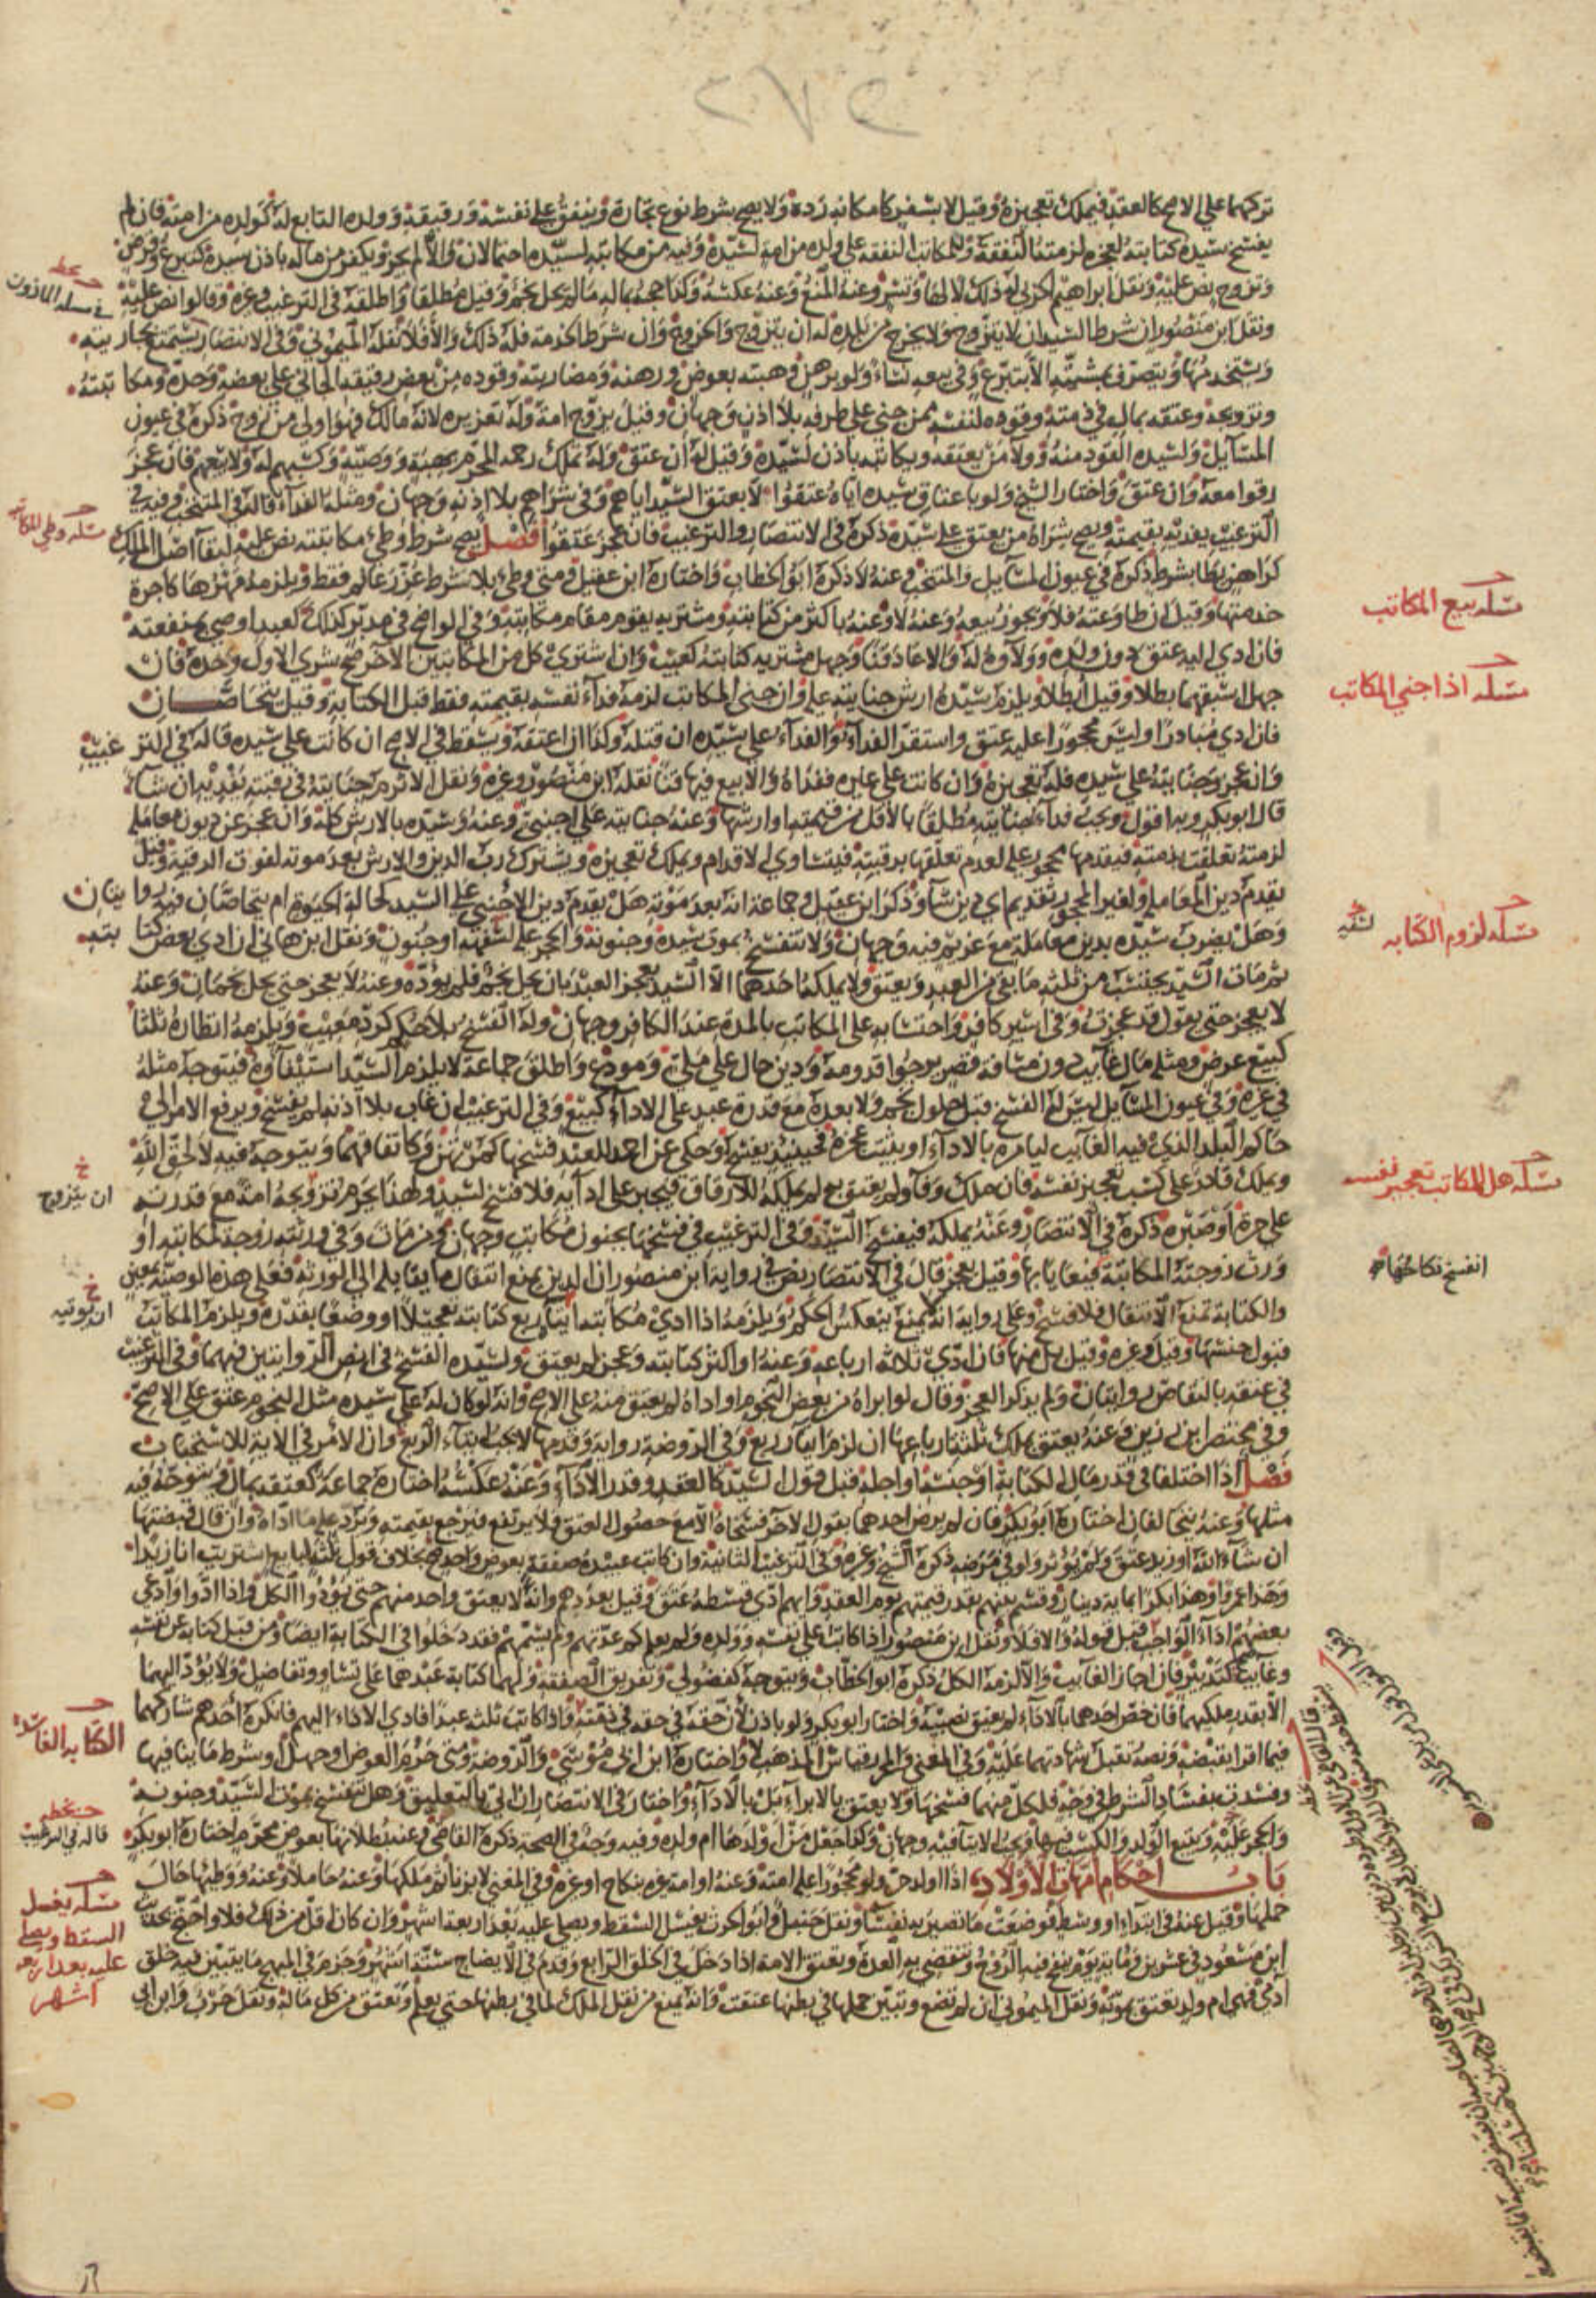 تركهما على الاصح كالعقد فيملك تعجيزه وقيل لا بسفر كامكانه رده ولا يصح شرط نوع تجارة وينفق على نفسه ورقيقه وولده التابع له كولده من امته فان لم
يفسخ سيده كتابته لعجزه لزمته النفقة وللمكاتب النفقه على ولده من امة لسيده وفيه من مكاتبة لسيده احتمالان والا لم يجز ويكفر من ماله باذن سيده كتبرع وقرض
وتزوج نص عليه ونقل ابراهيم اكرى له ذلك لا لها وتسر وعنه المنع وعنه عكسه وكذا حجه بماله ما لم يحل نجم وقيل مطلقا واطلقه في الترغيب وغيره وقالوا نص عليه
ونقل ابن منصور ان شرط السيد ان لا يتزوج ولا يخرج من بلده له ان يتزوج والخروج وان شرط الخدمة فله ذلك والا فلا نقله الميموني وفي الانتصار يستمتع بجاريته
ويستخدمها ويتصرف بمشيئته الا بتبرع وفي بيعه نساء ولو برهن وهبته بعوض ورهنه ومضاربته وقوده من بعض رقيقه الجاني على بعضه وحده ومكاتبته
وتزويجه وعتقه بمال في ذمته وقوده لنفسه ممن جنى على طرفه بلا اذن وجهان وقيل يزوج امة وله تعزيره لانه مالك فهو اولى من زوج ذكره في عيون
المسايل ولسيده القود منه وولا من يعتقه ويكاتبه باذن لسيده وقيل له ان عتق وله تملك رحمه المحرم بهبة ووصية وكسبهم له ولا يبعهم فان عجز
رقوا معه وان عتق واختار الشيخ ولو باعتاق سيده اياه عتقوا لا بعتق السيد اياهم وفي شراهم بلا اذنه وجهان ومثله الفداء قاله في المنتخب وفيه في
الترغيب يفديه بقيمته ويصح شراه من يعتق على سيده ذكره في الانتصار والترغيب فان عجز عتقوا فصل يصح شرط وطي مكاتبته نص عليه لبقا اصل الملك
كراهن يطا بشرط ذكره في عيون المسايل والمنتخب وعنه لا ذكره ابو الخطاب واختاره ابن عقيل ومتى وطي بلا شرط عزر عالم فقط ويلزمه مهرها كاجرة
خدمتها وقيل ان طاوعته فلا ويجوز بيعه وعنه لا وعنه باكثر من كتابته ومشتريه يقوم مقام مكاتبه وفي الواضح في مدبر كذلك كعبد اوصي بمنفعته
فان ادى اليه عتق دون ولده وولاوه له والا عاد قنا وجهل مشتريه كتابته كعيب وان اشترى كل من المكاتبين الاخر صح شرى الاول وحده فان
جهل اسبقهما بطلا وقيل ابطلا ويلزم سيده ارش جنايته عليه وان جنى المكاتب لزمه فداء نفسه بقيمته فقط قبل الكتابة وقيل يتحاصان
فان ادى مبادرا وليس محجورا عليه عتق واستقر الفداء والفداء على سيده ان قتله وكذا ان اعتقه ويسقط في الاصح ان كانت على سيده قاله في الترغيب
وان عجز وجنايته على سيده فله تعجيزه وان كانت على غيره ففداه والا بيع فيها قنا نقله ابن منصور وغيره ونقل الاثرم جنايته في رقبته يفديه ان شاء
قال ابو بكر وبه اقول ويجب فداء جنايته مطلقا بالاقل من قيمته او ارشها وعنه جنايته على اجنبي وعنه وسيده بالارش كله وان عجز عن ديون معاملة
لزمته تعلقت بذمته فيقدمها محجور عليه لعدم تعلقها برقبته فيتساوى الاقدام ويملك تعجيزه ويشترك رب الدين والارش بعد موته لفوت الرقبة وقيل
يقدم دين المعاملة ولغير المحجور تقديم اي دين شاء وذكر ابن عقيل وجماعة انه بعد موته هل يقدم دين الاجنبي على السيد كحالة الحيوة ام يتحاصان فيه روايتان
وهل يضرب سيده بدين معاملة مع غريم فيه وجهان ولا تنفسخ بموت سيده وجنونه والحجر عليه لسفه او جنون ونقل ابن هاني ان ادى بعض كتابته
ثم مات السيد يحتسب من ثلثه ما بقي من العبد ويعتق ولا يملكها احدهما الا السيد بعجز العبد بان يحل نجم فلم يوده وعنه لا يعجز حتى يحل نجمان وعنه
لا يعجز حتى يقول قد عجزت وفي اسير كافر واحتسابه على المكاتب بالمدة عند الكافر وجهان وله الفسخ بلا حكم كرد معيب ويلزمه انظاره ثلثا
كبيع عرض ومثله مال غايب دون مسافة قصر يرجوا قدومه ودين حال على ملي ومودع واطلق جماعة لا يلزم السيد استيفاوه فيتوجه مثله
في غيره وفي عيون المسايل ليس له الفسخ قبل حلول نجم ولا بعده مع قدرة عبد على الاداء كبيع وفي الترغيب ان غاب بلا اذنه لم يفسخ ويرفع الامر الى
حاكم البلد الذي فيه الغايب ليامره بالاداء او يثبت عجزه فحينيذ يفسخ وحكى عن احمد للعبد فسخها كمرتهن وكاتفاقهما ويتوجه فيه لا لحق الله
ويملك قادر على كسب تعجيز نفسه فان ملك وفاء ولم يعتق به لم يملكه للارقاق فيجبر على ادايه فلا فسخ لسيد ولهذا يحرم تزوجه امة مع قدرته
على حرة او صبره ذكره في الانتصار وعنه يملكه فيفسخ السيد وفي الترغيب في فسخها بجنون مكاتب وجهان ومن مات وفي ورثته زوجة لمكاتبه او
ورث زوجته المكاتبة وقيل بعجز قال في الانتصار نص في رواية ابن منصور ان الدين يمنع انتقال ما يقابله الى الورثه فعلى هذه الوصية بمعين
والكتابة تمنع الانتقال فلا فسخ وعلى رواية انه يمنع ينعكس الحكم ويلزمه اذا ادى مكاتبه ايتاء ربع كتابته تعجيلا او وضعا بقدره ويلزم المكاتب
قبول جنسها وقيل وغيره وقيل بل منها فان ادى ثلاثة ارباعه وعنه او اكثر كتابته وعجز لم يعتق ولسيده الفسخ في انص الروايتين فيهما وفي الترغيب
في عتقه بالتقاص روايتان ولم يذكر العجز وقال لو ابراه من بعض النجوم او اداه لم يعتق منه على الاصح وانه لو كان له على سيده مثل النجوم عتق على الاصح
وفي مختصر ابن رزين وعنه يعتق بملك ثلثة ارباعها ان لزم ايتاء ربع وفي الروضة رواية وقدمها لا يجب ايتاء الربع وان الامر في الاية للاستحباب
فصل اذا اختلفا في قدر مال الكتابة او جنسه او اجله قبل قول السيد كالعقد وقدر الاداء وعنه عكسه اختاره جماعة كعتقه بمال ويتوجه فيه
مثلها وعنه يتحالفان اختاره ابو بكر فان لم يرض احدهما بقول الاخر فسخاه الا مع حصول العتق فلا يرتفع فيرجع بقيمته ويرد عليه ما اداه وان قال قبضتها
ان شاء الله او زيد عتق ولم يوثر ولو في مرضه ذكره الشيخ وغيره وفي الترغيب الثانية وان كاتب عبيده صفقة بعوض واحد صح بخلاف قول ثلثة لبايع اشتريت انا زيدا
وهذا عمروا وهذا بكرا بماية دينار وقسم بينهم بقدر قيمتهم يوم العقد وايهم ادى قسطه عتق وقيل بعددهم وانه لا يعتق واحد منهم حتى يودوا الكل واذا ادوا وادعى
بعضهم اداء الواجب قبل قوله والا فلا ونقل ابن منصور اذا كاتب على نفسه وولده ولم يعلم كم عدتهم ولم يسمهم فقد دخلوا في الكتابة ايضا ومن قبل كتابة عن نفسه
وغايب كتدبير فان اجاز الغايب والا لزمه الكل ذكره ابو الخطاب ويتوجه كفضولي وتفريق الصفقة ولهما كتابة عبدهما على تساو وتفاضل ولا يودي اليهما
الا بقدر ملكيهما فان خص احدهما بالاداء لم يعتق نصيبه واختار ابو بكر ولو باذن لان حقه في ذمته واذا كاتب ثلثة عبدا فادعى الاداء اليهم فانكره احدهم شاركهما
فيما اقرا بقبضه ونصه تقبل شهادتهما عليه وفي المغني والمحرر قياس المذهب لا واختاره ابن ابي موسى والروضة ومتى حرم العوض او جهل او شرط ما ينافيها
وفسدت بفساد الشرط في وجه فلكل منهما فسخها ولا يعتق بالابراء بل بالاداء واختار في الانتصار ان اتى بالتعليق وهل تنفسخ بموت السيد وجنونه
والحجر عليه ويتبع الولد والكسب فيها ويجب الايتاء فيه وجهان وكذا جعل من اولدها ام ولده وفيه وجه في الصحة ذكره القاضي وعنه بطلانها بعوض محرم اختاره ابو بكر
باب احكام امهات الاولاد اذا اولد حر ولو محجورا عليه امته وعنه او امة غيره بنكاح او غيره وفي المغني لا بزنا ثم ملكها وعنه حاملا وعنه ووطيها حال
حملها وقيل عنه في ابتداء او وسطه فوضعت ما تصير به نفسا ونقل حنبل وابو الحرث يغسل السقط ويصلى عليه بعد اربعة اشهر وان كان اقل من ذلك فلا واحتج بحديث
ابن مسعود في عشرين وماية يوم ينفخ فيه الروح وتنقضي به العدة وتعتق الامة اذا دخل في الخلق الرابع وقدم في الايضاح ستة اشهر وجزم في المبهج ما يتبين فيه خلق
ادمي فهي ام ولد يعتق بموته ونقل الميموني ان لم تضع وتبين حملها في بطنها عتقت وانه يمنع من نقل الملك لما في بطنها حتى يعلم وتعتق من كل ماله ونقل حرب وابن ابي
مسلة وطي المكاتبة
مسلة بيع المكاتب
مسلة اذا جنى المكاتب
مسلة لزوم الكتابه
مسلة هل للمكاتب تعجيز نفسه
ان يتزوج
انفسخ نكاحهما
ان يوتيه
الكتابه الفاسدة
قاله في الترغيب
مسلة يغسل
السقط ويصلى
عليه بعد اربعة
اشهر